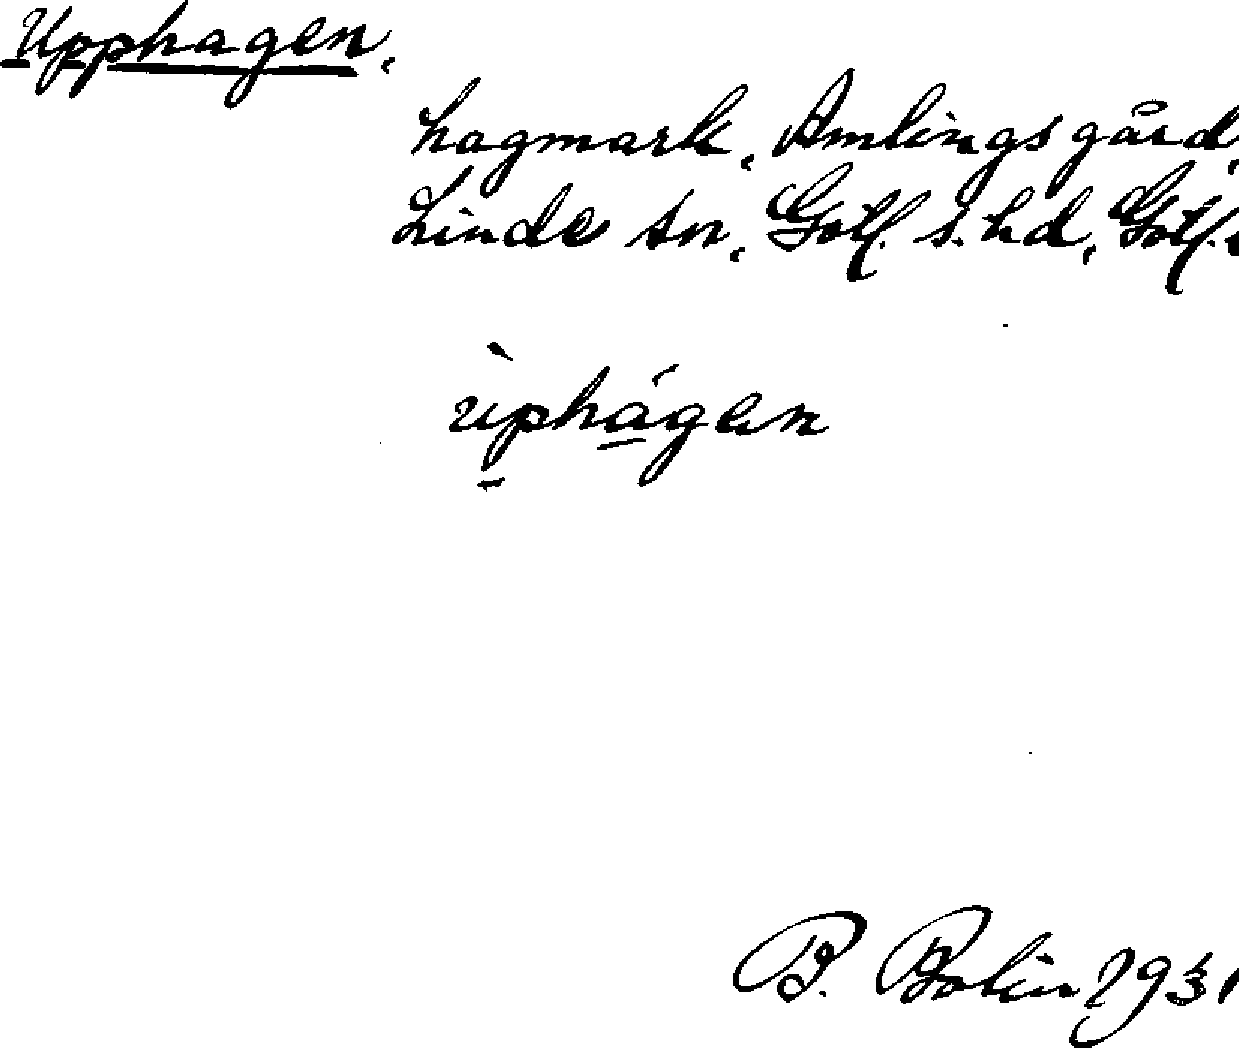 Upphagen,
hagmark, Amlings gård,
Linde sn, Gotl. s. hd, Gotl.
ùphágen
B. Bolin 1931